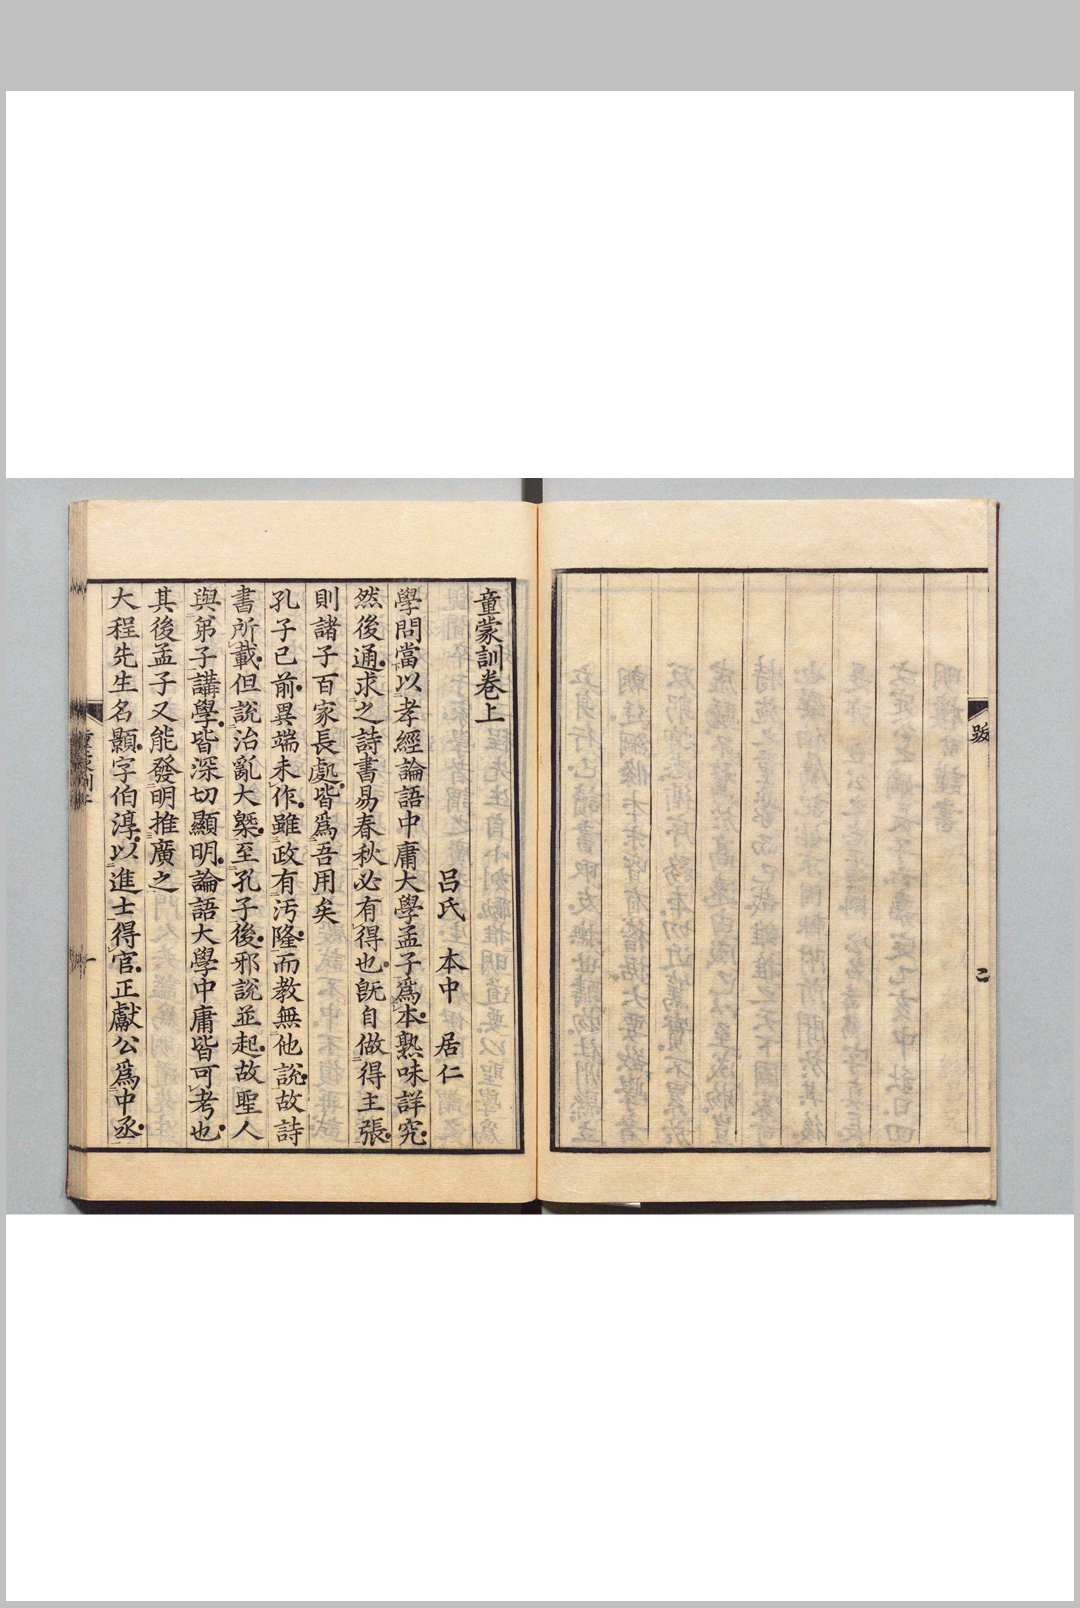 跋
二
童蒙訓卷上
呂氏 本中 居仁
學問當以孝經論語中庸大學孟子爲本熟味詳究
然後通求之詩書易春秋必有得也旣自做得主張
則諸子百家長處皆爲吾用矣
孔子已前異端未作雖政有汚隆而教無他說故詩
書所載但說治亂大槩至孔子後邪說並起故聖人
與弟子講學皆深切顯明論語大學中庸皆可考也
其後孟子又能發明推廣之
大程先生名顥字伯淳以進士得官正獻公爲中丞